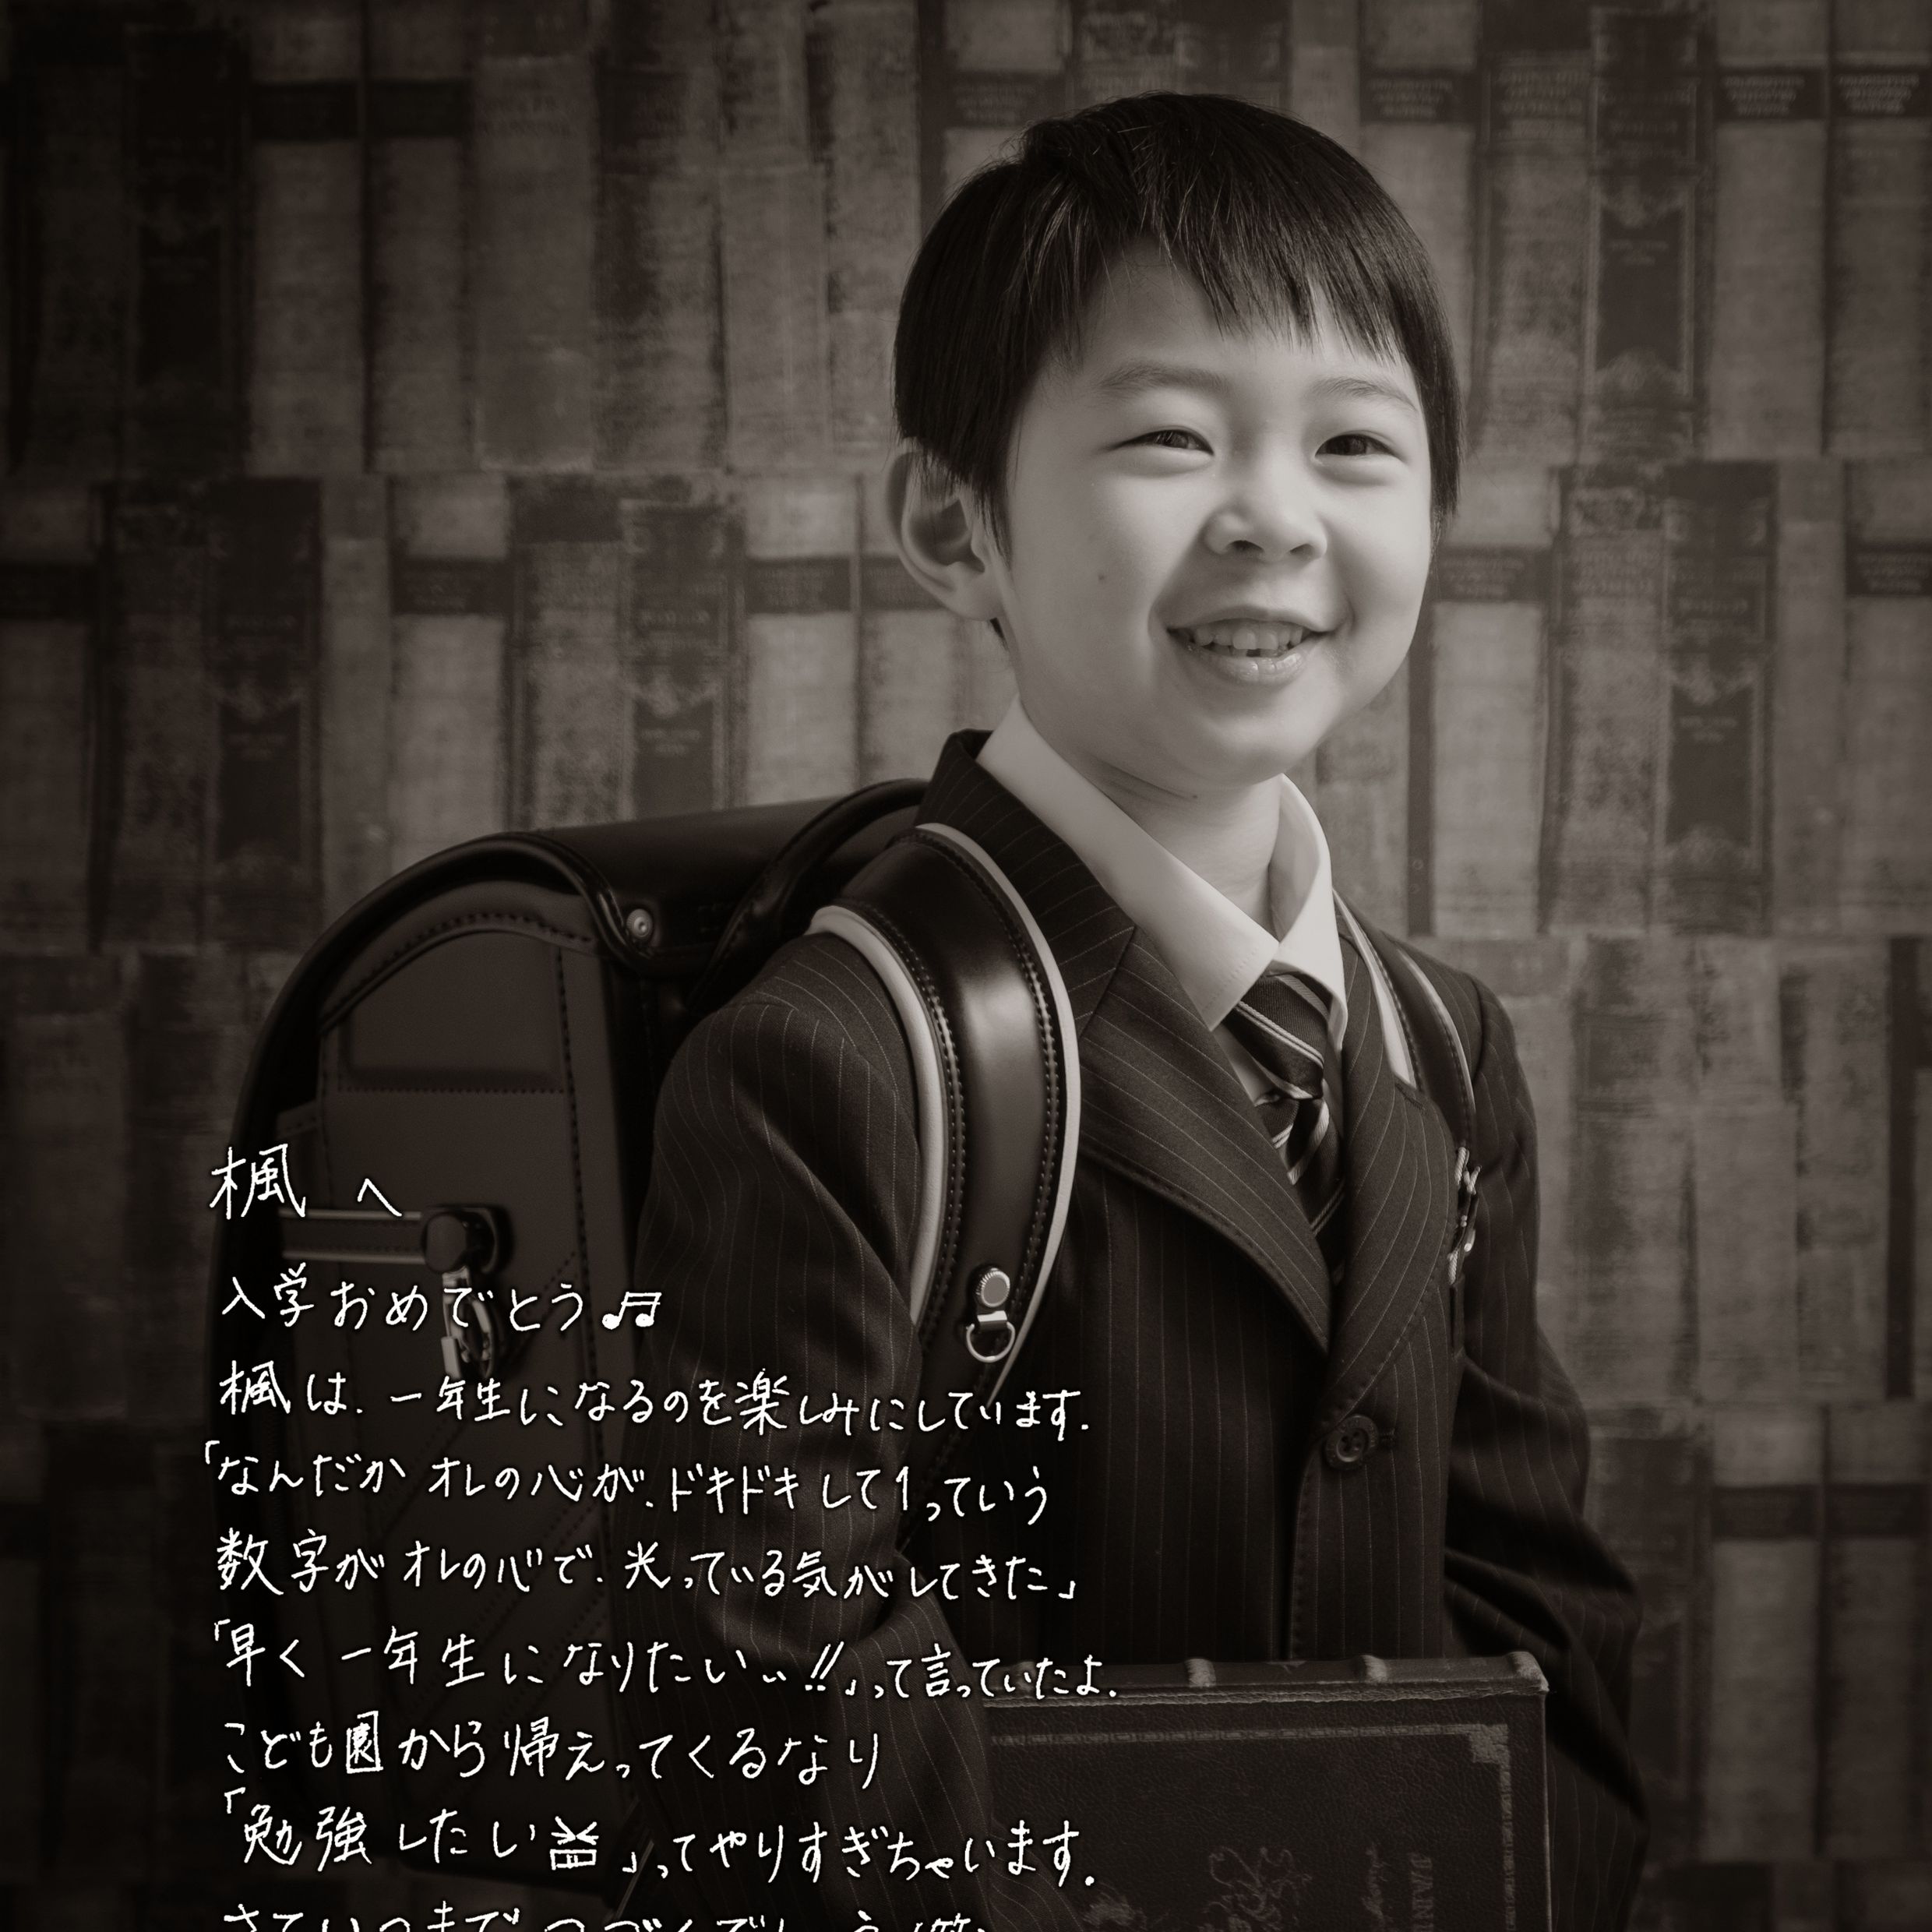 楓 へ
入学おめでとう♬
楓は、一年生になるのを楽しみにしています。
「なんだか オレの心が、ドキドキして1っていう
数字がオレの心で、光っている気がしてきた」
「早く 一年生になりたい..!!」って言っていたよ。
こども園から帰えってくるなり
「勉強したい」ってやりすぎちゃいます。
さていつまでつづくでしょう(笑)